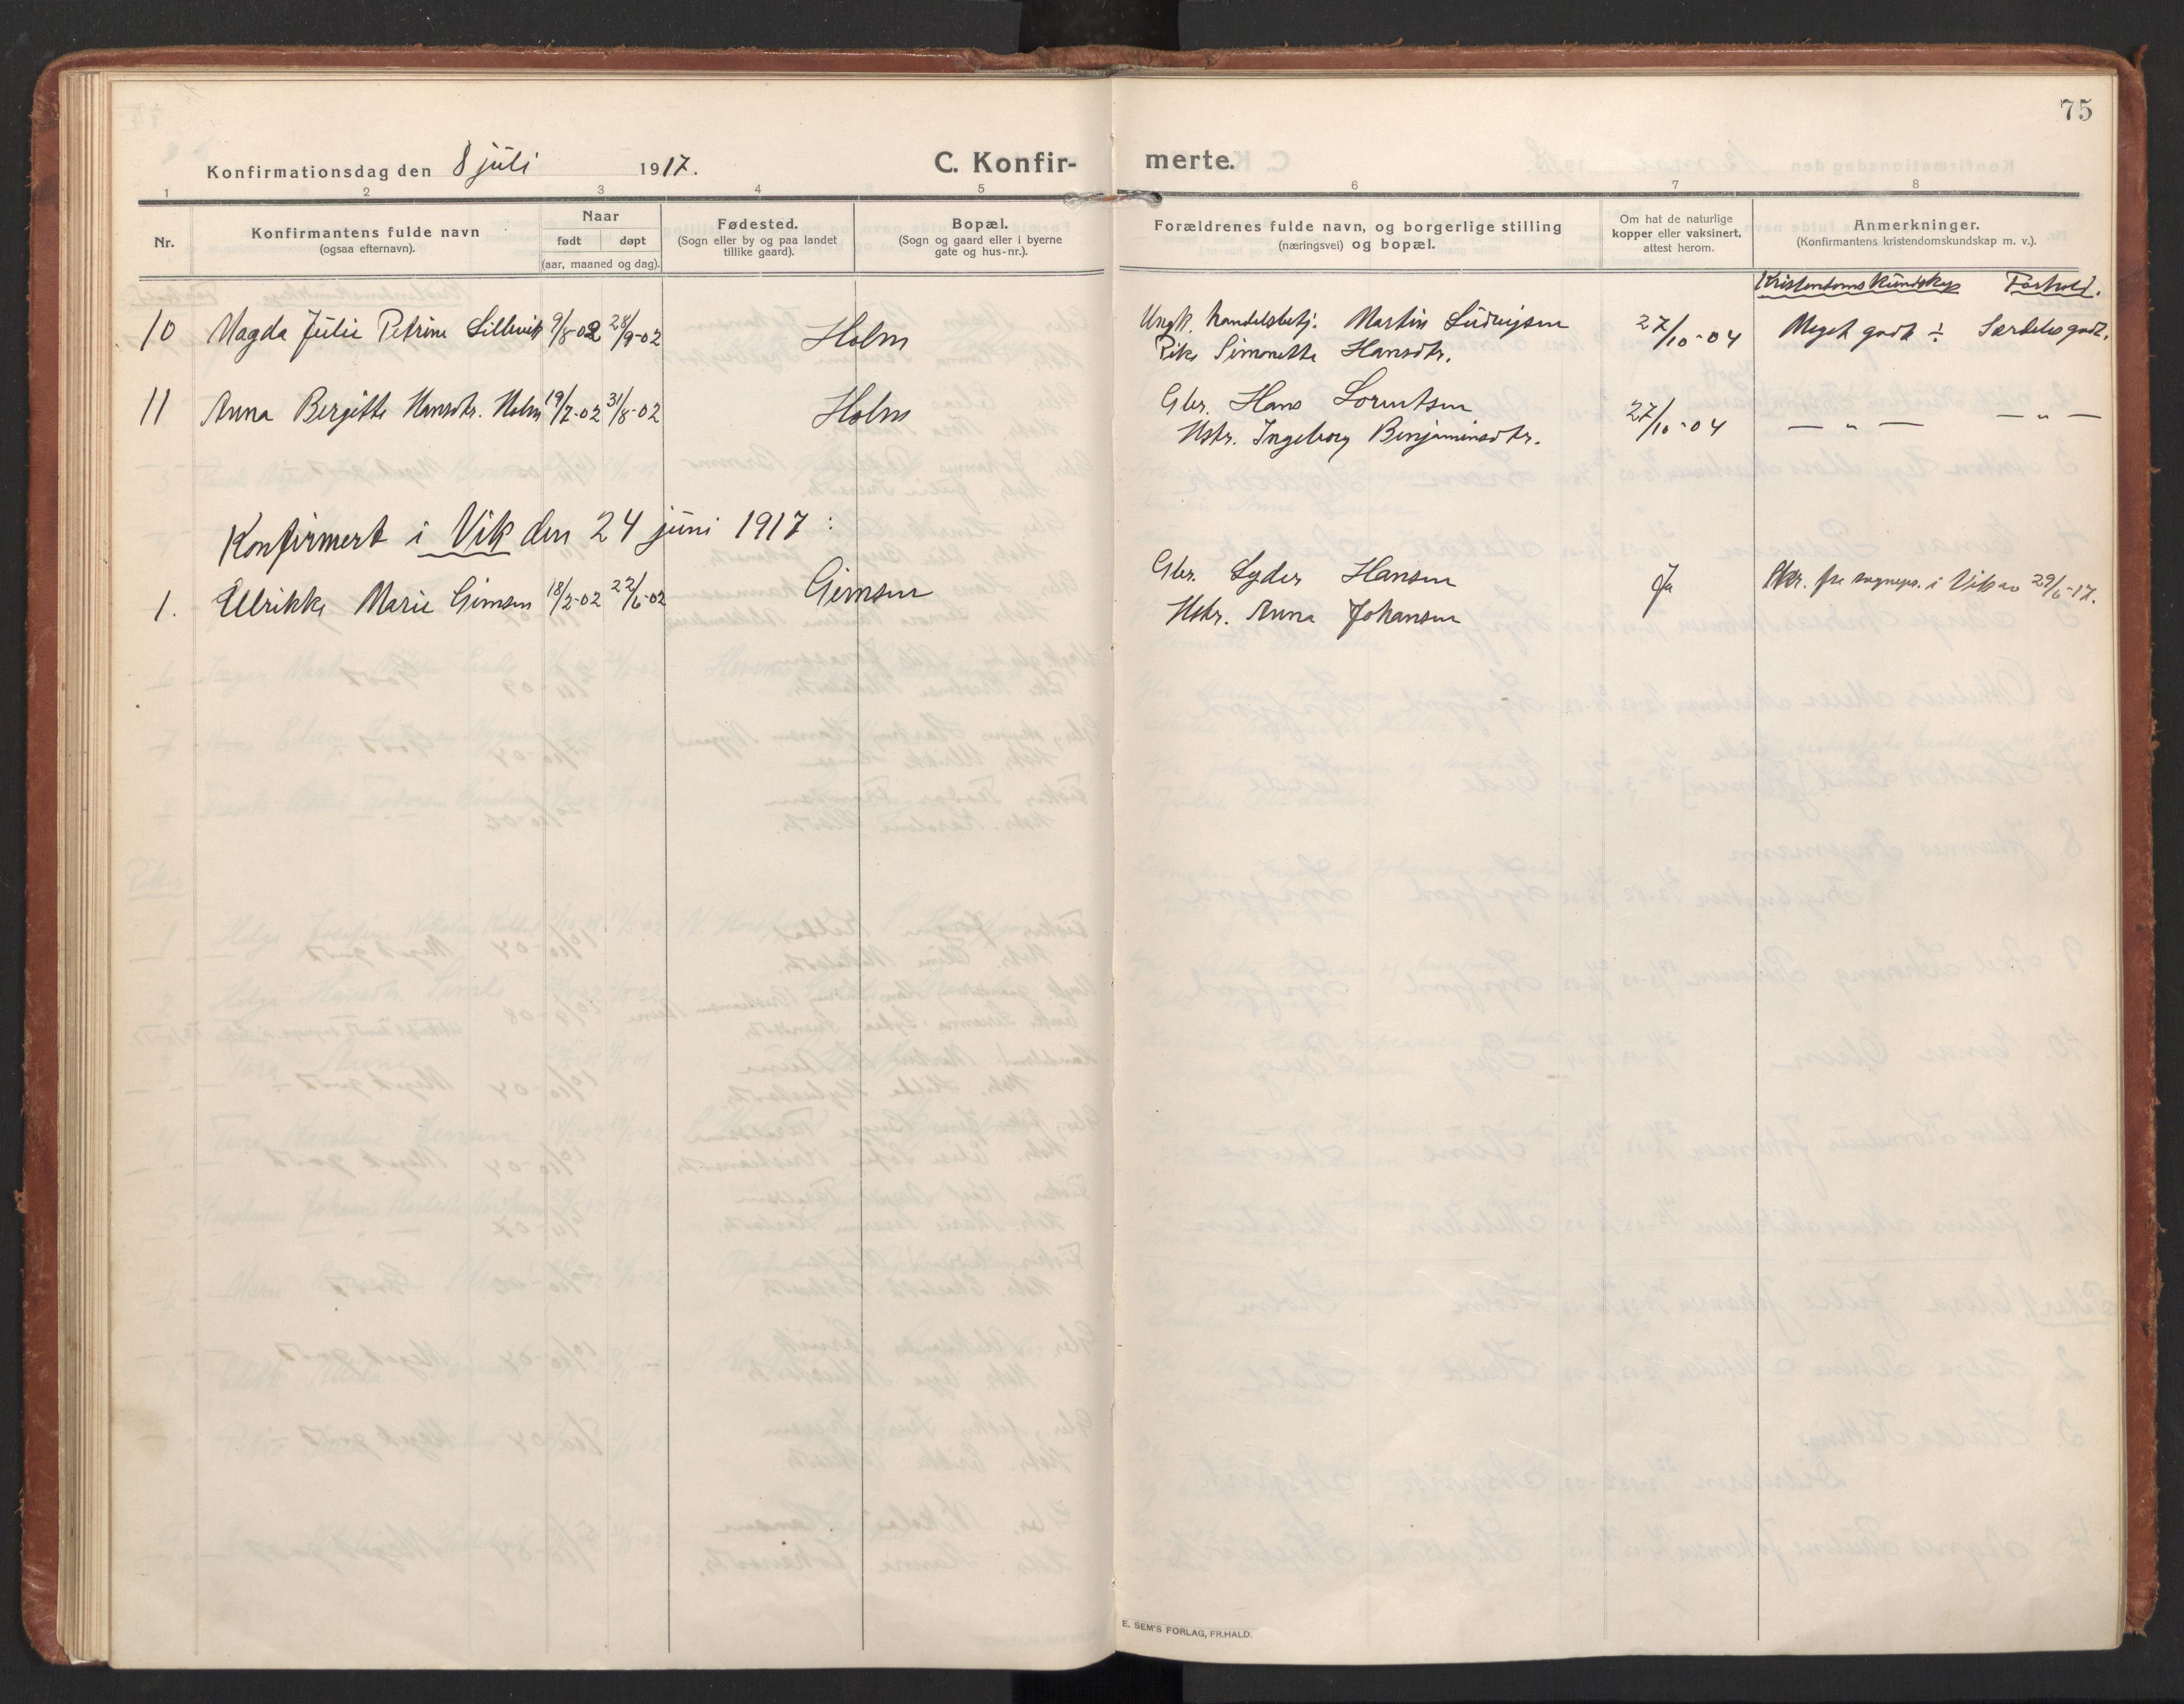 75
Konfirmationsdag den 8 juli 1917. C. Konfir- merte.
1 2 3 4 5 6 7 8
Nr. Konfirmantens fulde navn (ogsaa efternavn). Naar født døpt (aar, maaned og dag). Fødested. (Sogn eller by og paa landet tillike gaard). Bopæl. (Sogn og gaard eller i byerne gate og hus-nr.). Forældrenes fulde navn, og borgerlige stilling (næringsvei) og bopæl. Om hat de naturlige kopper eller vaksinert, attest herom. Anmerkninger. (Konfirmantens kristendomskundskap m. v.).
Kristendomskundskap Forhold.
10 Magda Julie Petrine Lillevik 9/8-02 28/9-02 Holm Ungk. handelsbetj. Martin Ludvigsen 27/10-04 Meget godt ÷ Særdeles godt.
Pike Simonette Hansdtr.
11 Anna Bergitte Hansdtr. Holm 19/7-02 31/8-02 Holm Gbr. Hans Lorentsen 27/10-04 — „ — — „ —
Hstr. Ingeborg Benjaminsdtr.
Konfirmert i Vik den 24 juni 1917:
1. Ullrikke Marie Gimsen 18/2-02 22/6-02 Gimsen Gbr. Lyder Hansen Ja fra sognepr. i Vik av 29/6-17.
Hstr. Anna Johansen
E. SEM'S FORLAG, FR.HALD.